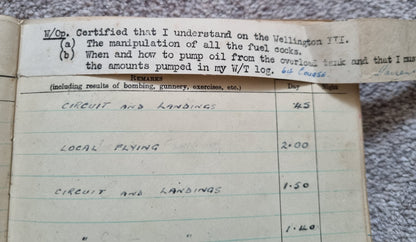 W/Op. Certified that I understand on the Wellington III.
(a) The manipulation of all the fuel cocks.
(b) When and how to pump oil from the overload tank and that I must
the amounts pumped in my W/T log.
REMARKS
(including results of bombing, gunnery, exercises, etc.)
Day
CIRCUIT AND LANDINGS .45
LOCAL FLYING 2.00
CIRCUIT AND LANDINGS 1.50
" " 1.40